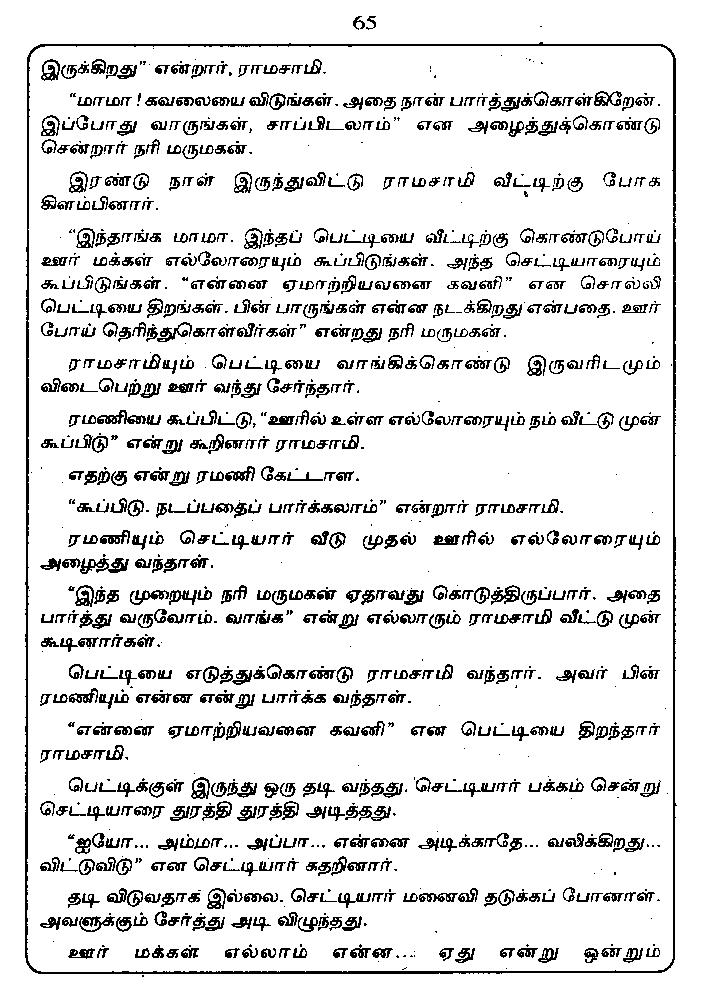 65
இருக்கிறது” என்றார், ராமசாமி.
“மாமா ! கவலையை விடுங்கள். அதை நான் பார்த்துக்கொள்கிறேன்.
இப்போது வாருங்கள், சாப்பிடலாம்” என அழைத்துக்கொண்டு
சென்றார் நரி மருமகன்.
இரண்டு நாள் இருந்துவிட்டு ராமசாமி வீட்டிற்கு போக
கிளம்பினார்.
“இந்தாங்க மாமா. இந்தப் பெட்டியை வீட்டிற்கு கொண்டுபோய்
ஊர் மக்கள் எல்லோரையும் கூப்பிடுங்கள். அந்த செட்டியாரையும்
கூப்பிடுங்கள். “என்னை ஏமாற்றியவனை கவனி” என சொல்லி
பெட்டியை திறங்கள். பின் பாருங்கள் என்ன நடக்கிறது என்பதை. ஊர்
போய் தெரிந்துகொள்வீர்கள்” என்றது நரி மருமகன்.
ராமசாமியும் பெட்டியை வாங்கிக்கொண்டு இருவரிடமும்
விடைபெற்று ஊர் வந்து சேர்ந்தார்.
ரமணியை கூப்பிட்டு, “ஊரில் உள்ள எல்லோரையும் நம் வீட்டு முன்
கூப்பிடு” என்று கூறினார் ராமசாமி.
எதற்கு என்று ரமணி கேட்டாள.
“கூப்பிடு. நடப்பதைப் பார்க்கலாம்” என்றார் ராமசாமி.
ரமணியும் செட்டியார் வீடு முதல் ஊரில் எல்லோரையும்
அழைத்து வந்தாள்.
“இந்த முறையும் நரி மருமகன் ஏதாவது கொடுத்திருப்பார். அதை
பார்த்து வருவோம். வாங்க” என்று எல்லாரும் ராமசாமி வீட்டு முன்
கூடினார்கள்.
பெட்டியை எடுத்துக்கொண்டு ராமசாமி வந்தார். அவர் பின்
ரமணியும் என்ன என்று பார்க்க வந்தாள்.
“என்னை ஏமாற்றியவனை கவனி” என பெட்டியை திறந்தார்
ராமசாமி.
பெட்டிக்குள் இருந்து ஒரு தடி வந்தது. செட்டியார் பக்கம் சென்று
செட்டியாரை துரத்தி துரத்தி அடித்தது.
“ஐயோ... அம்மா... அப்பா... என்னை அடிக்காதே... வலிக்கிறது...
விட்டுவிடு” என செட்டியார் கதறினார்.
தடி விடுவதாக இல்லை. செட்டியார் மனைவி தடுக்கப் போனாள்.
அவளுக்கும் சேர்த்து அடி விழுந்தது.
ஊர் மக்கள் எல்லாம் என்ன... ஏது என்று ஒன்றும்